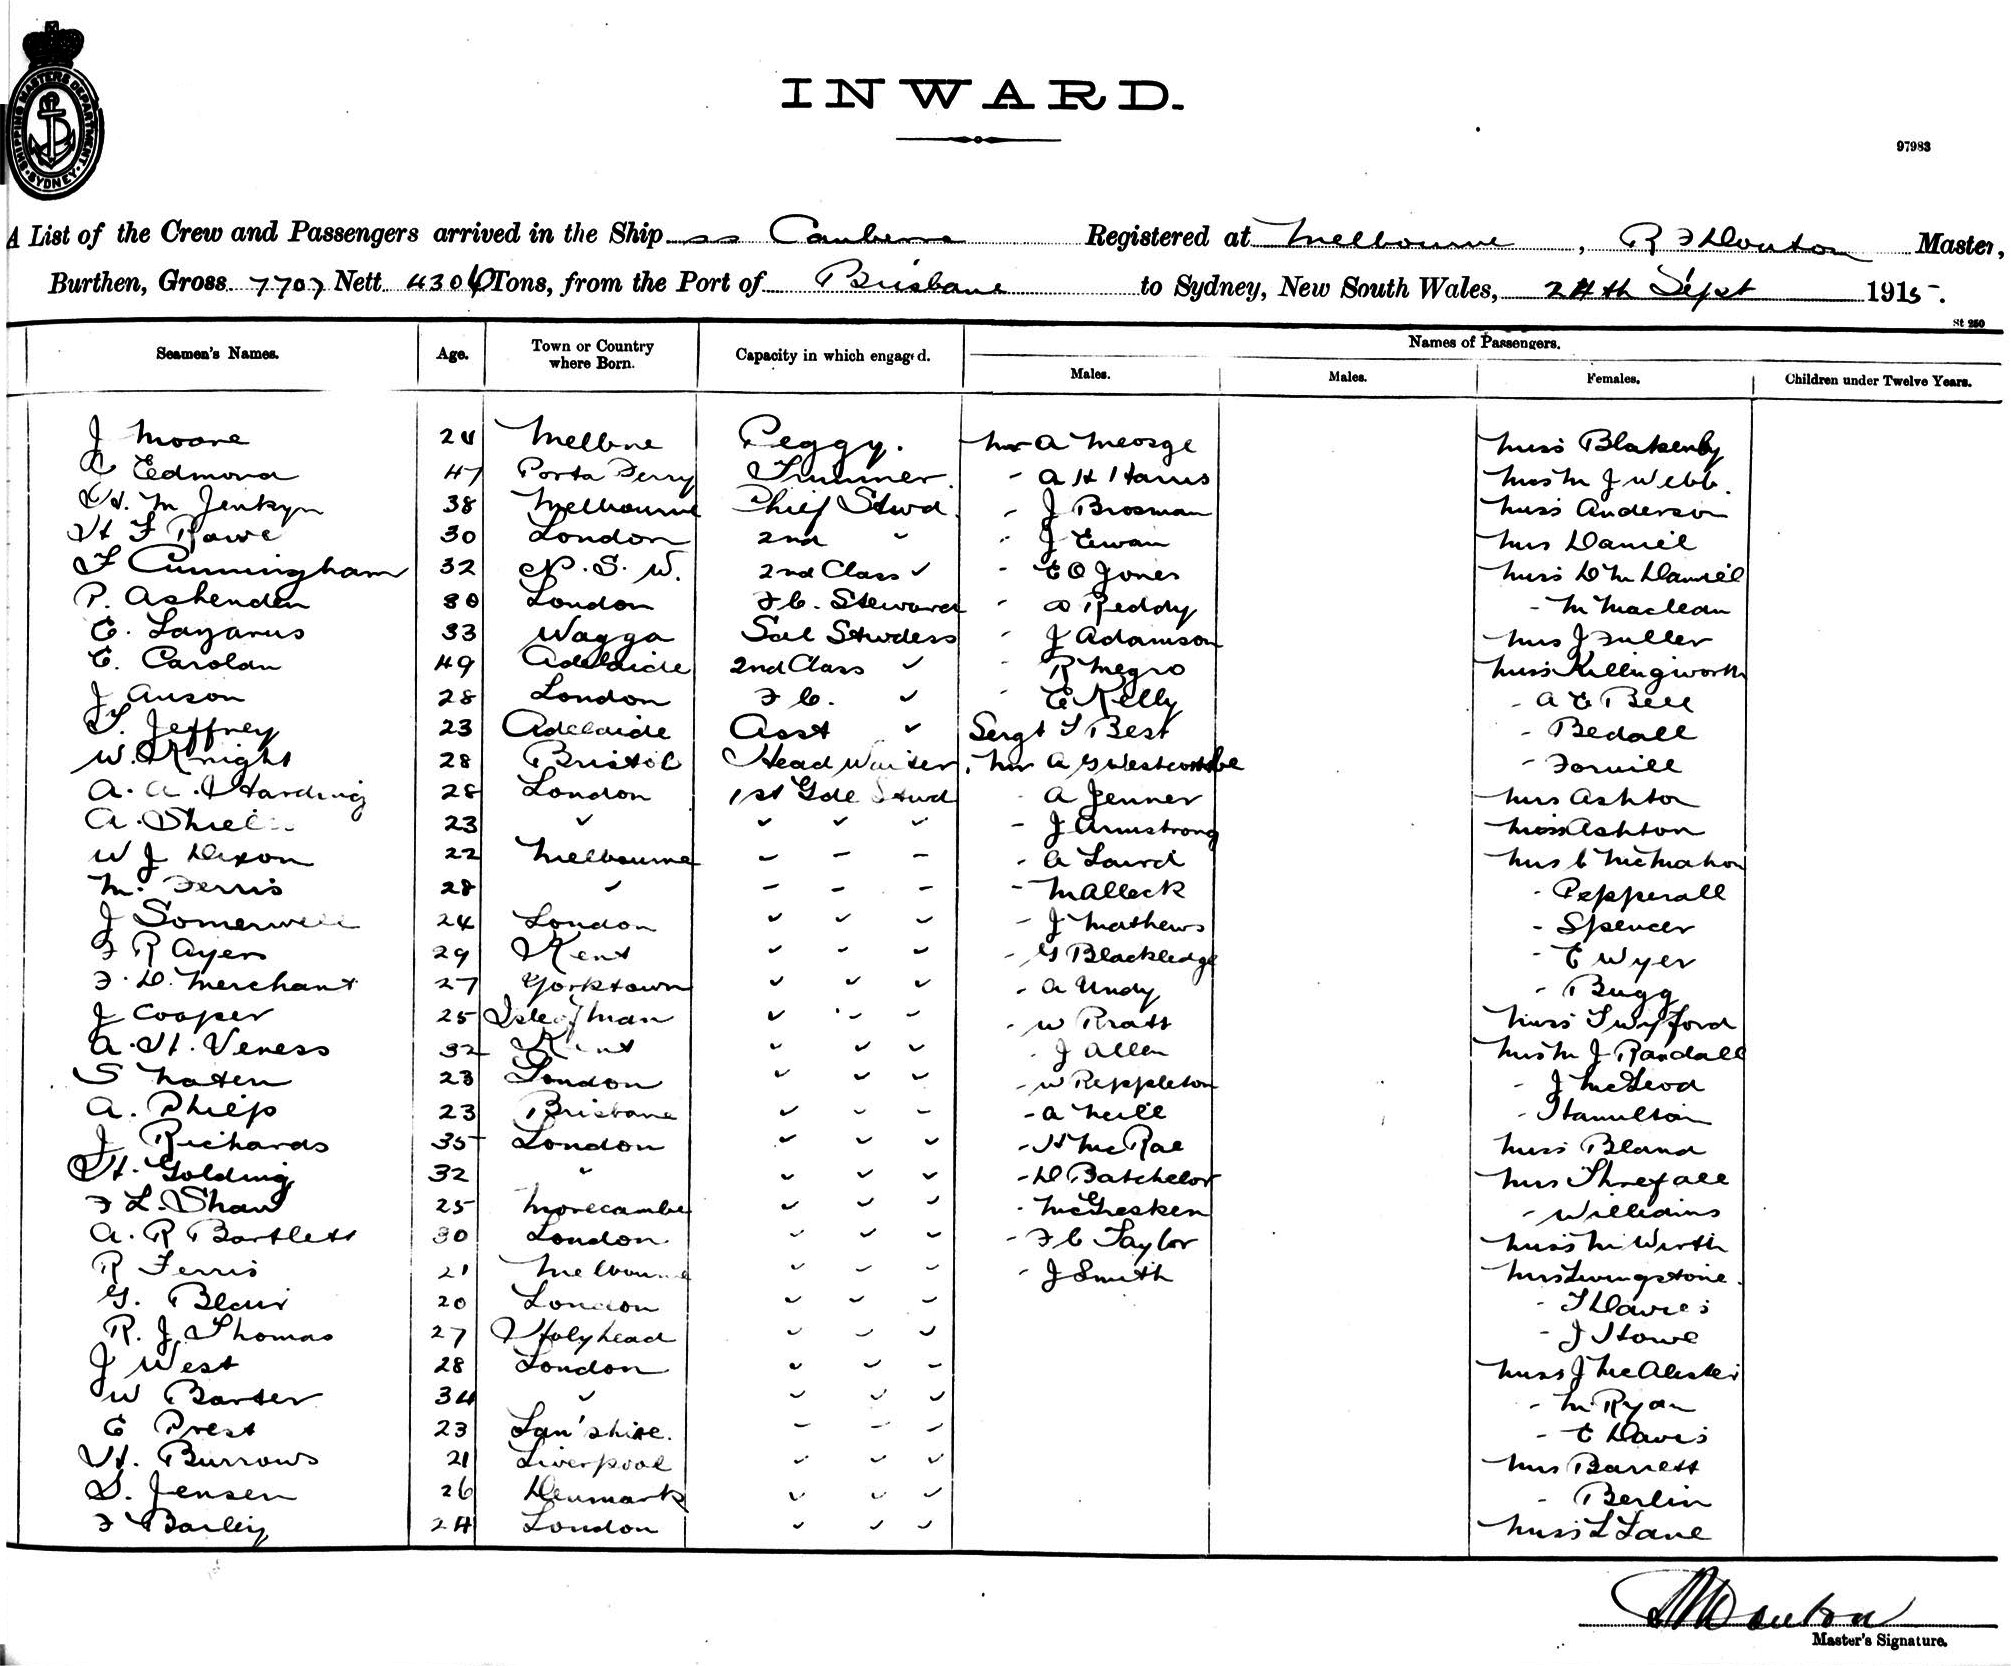 SHIPPING MASTERS DEPARTMENT
SYDNEY
INWARD.
97983
A List of the Crew and Passengers arrived in the Ship ss Canberra Registered at Melbourne, R F Douton Master,
Burthen, Gross 7707 Nett 4306 Tons, from the Port of Brisbane to Sydney, New South Wales, 24th Sept 1915.
St 250
Seamen's Names. Age. Town or Country where Born. Capacity in which engaged. Names of Passengers.
Males. Males. Females. Children under Twelve Years.
J Moore 24 Melbne Peggy. Mr A Meorge Miss Blakenby
Edmond 47 Porta Ferry Trimmer. - A H Harris Mrs M J Webb.
W. M Jenkyn 38 Melbourne Chief Stwd. - J Brosman Miss Anderson
H F Rowe 30 London 2nd " - J Ewan Mrs Daniel
F Cunningham 32 N. S. W. 2nd Class ✓ - E O Jones Miss D M Daniel
P. Ashenden 30 London F C. Steward - Reddy - M Maclean
E. Lazarus 33 Wagga Sal Stwdess - J Adamson Mrs J Fuller
E. Carolan 49 Adelaide 2nd Class ✓ - R Megro Miss Killingworth
J Anson 28 London F C. ✓ - E Kelly - A E Bell
S. Jeffrey 23 Adelaide Asst ✓ Sergt S Best - Bedall
W. Knight 28 Bristol Head Waiter. Mr A G - Forville
A. A. Harding 28 London 1st Gde Stwd - A Jenner Mrs Ashton
A. 23 ✓ ✓ ✓ ✓ - J Armstrong Miss Ashton
W J Dixon 22 Melbourne ✓ - - - A Laird Mrs C McMahon
M. Ferris 28 ✓ - - - - Malleck - Pepperall
J Somerwell 24 London ✓ ✓ ✓ - J Mathews - Spencer
F R Ayers 29 Kent ✓ ✓ ✓ - G Blackledge - E Wyer
F. D. Merchant 27 Yorktown ✓ ✓ ✓ - A Undy - Bugg
J Cooper 25 Isle of Man ✓ ✓ ✓ - W Pratt Miss Twyford
A. H. Veness 32 Kent ✓ ✓ ✓ - J Allen Mrs M J Randall
S Naten 23 London ✓ ✓ ✓ - W Peppleton - J McLeod
A. Philp 23 Brisbane ✓ ✓ ✓ - A Neill - Hamilton
J Richards 35 London ✓ ✓ ✓ - H McRae Miss Bland
H. Golding 32 " ✓ ✓ ✓ - D Batchelor Mrs Threfall
F L. Shaw 25 Morecambe ✓ ✓ ✓ - McGresken - Williams
A. R Bartlett 30 London ✓ ✓ ✓ - F C Taylor Miss M Wirth
R Ferris 21 Melbourne ✓ ✓ ✓ - J Smith Mrs Livingstone.
G. Blair 20 London ✓ ✓ ✓ - T Davies
R. J. Thomas 27 Holyhead ✓ ✓ ✓ - J Howe
J West 28 London ✓ ✓ ✓ Miss J McAlister
W Barter 34 ✓ ✓ ✓ ✓ - M Ryan
E Prest 23 Lan'shire. ✓ ✓ ✓ - E Davis
H. Burrows 21 Liverpool ✓ ✓ ✓ Mrs Barrett
S. Jensen 26 Denmark ✓ ✓ ✓ - Berlin
F Bailey 24 London ✓ ✓ ✓ Miss L Lane
Master's Signature.